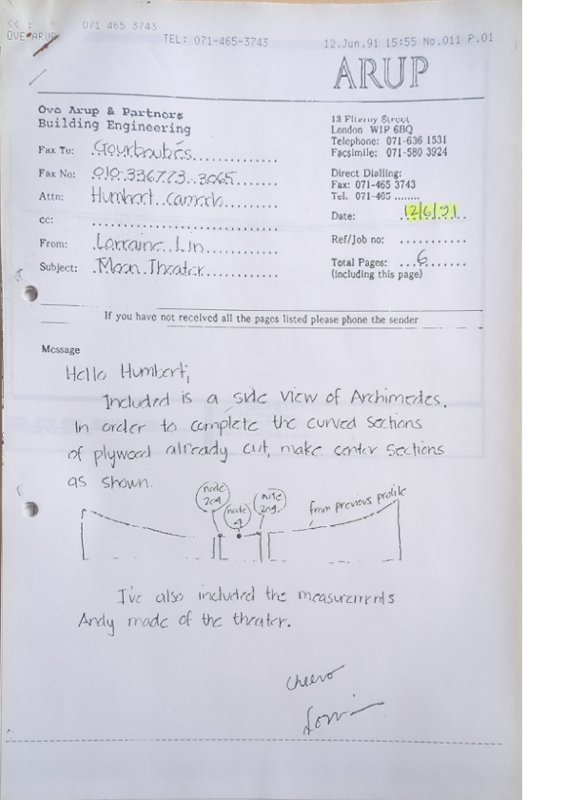 << : 071 465 3743
OVE ARUP TEL: 071-465-3743 12.Jun.91 15:55 No.011 P.01
ARUP
Ove Arup & Partners
Building Engineering
13 Fitzroy Street
London W1P 6BQ
Telephone: 071-636 1531
Facsimile: 071-580 3924
Fax To: Gourboubés
Fax No: 010-33673-3065
Direct Dialling:
Fax: 071-465 3743
Tel. 071-465 ........
Attn: Humbert Camerlo
Date: 12/6/91
cc:
From: Lorraine Lin
Ref/Job no: ...........
Subject: Moon Theater
Total Pages: 6
(including this page)
If you have not received all the pages listed please phone the sender
Message
Hello Humbert,
Included is a side view of Archimedes.
In order to complete the curved sections
of plywood already cut, make center sections
as shown.
node 204
node 9
node 209
from previous profile
I've also included the measurements
Andy made of the theater.
Cheers